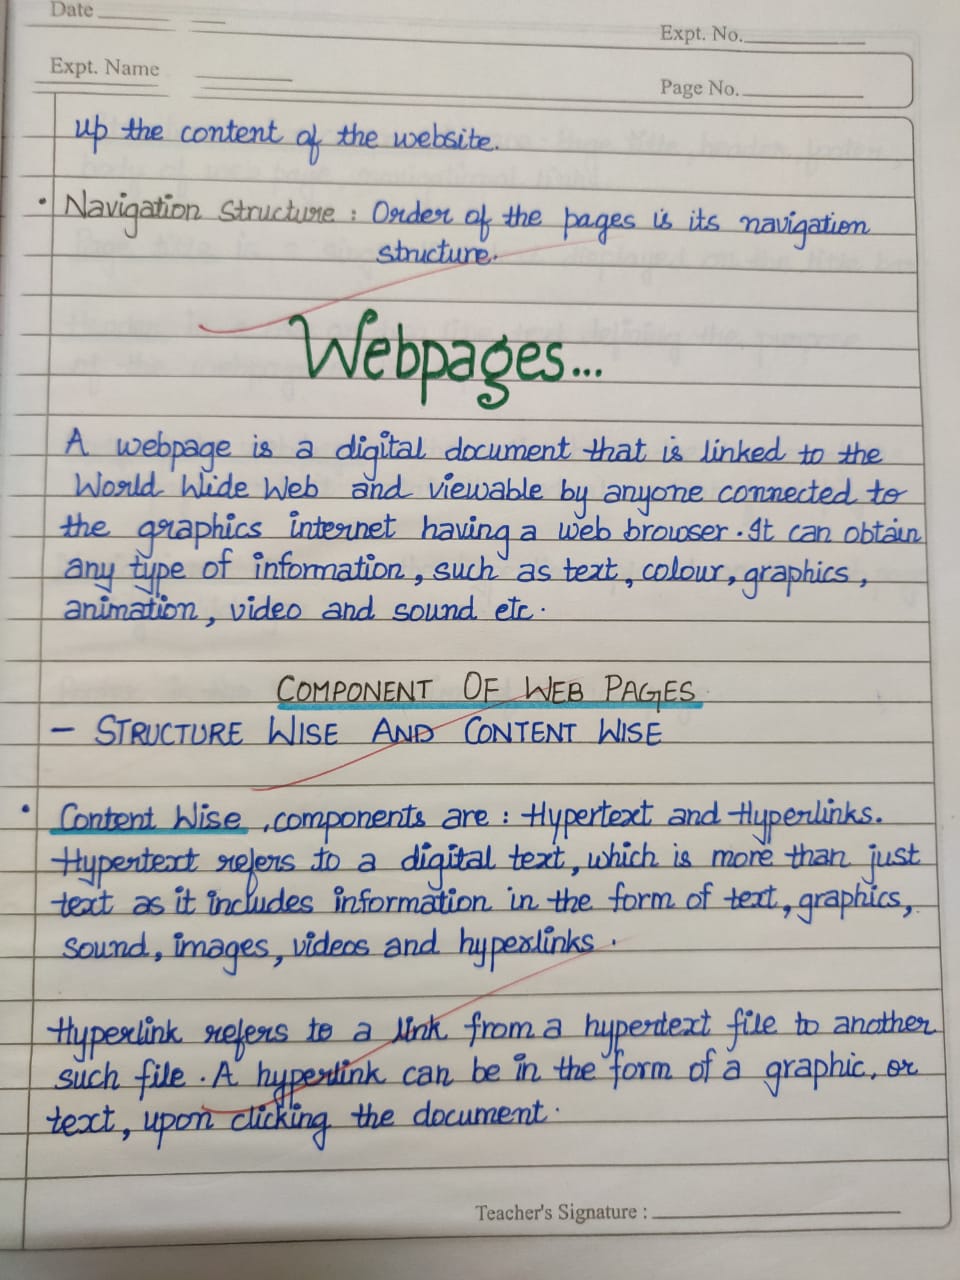 Date
Expt. No.
Expt. Name
Page No.
up the content of the website.
• Navigation Structure : Order of the pages is its navigation
structure.
Webpages...
A webpage is a digital document that is linked to the
World Wide Web and viewable by anyone connected to
the graphics internet having a web browser. It can obtain
any type of information, such as text, colour, graphics,
animation, video and sound etc.
COMPONENT OF WEB PAGES
- STRUCTURE WISE AND CONTENT WISE
• Content Wise , components are : Hypertext and Hyperlinks.
Hypertext refers to a digital text, which is more than just
text as it includes information in the form of text, graphics,
sound, images, videos and hyperlinks.
Hyperlink refers to a link from a hypertext file to another
such file. A hyperlink can be in the form of a graphic, or
text, upon clicking the document.
Teacher's Signature :